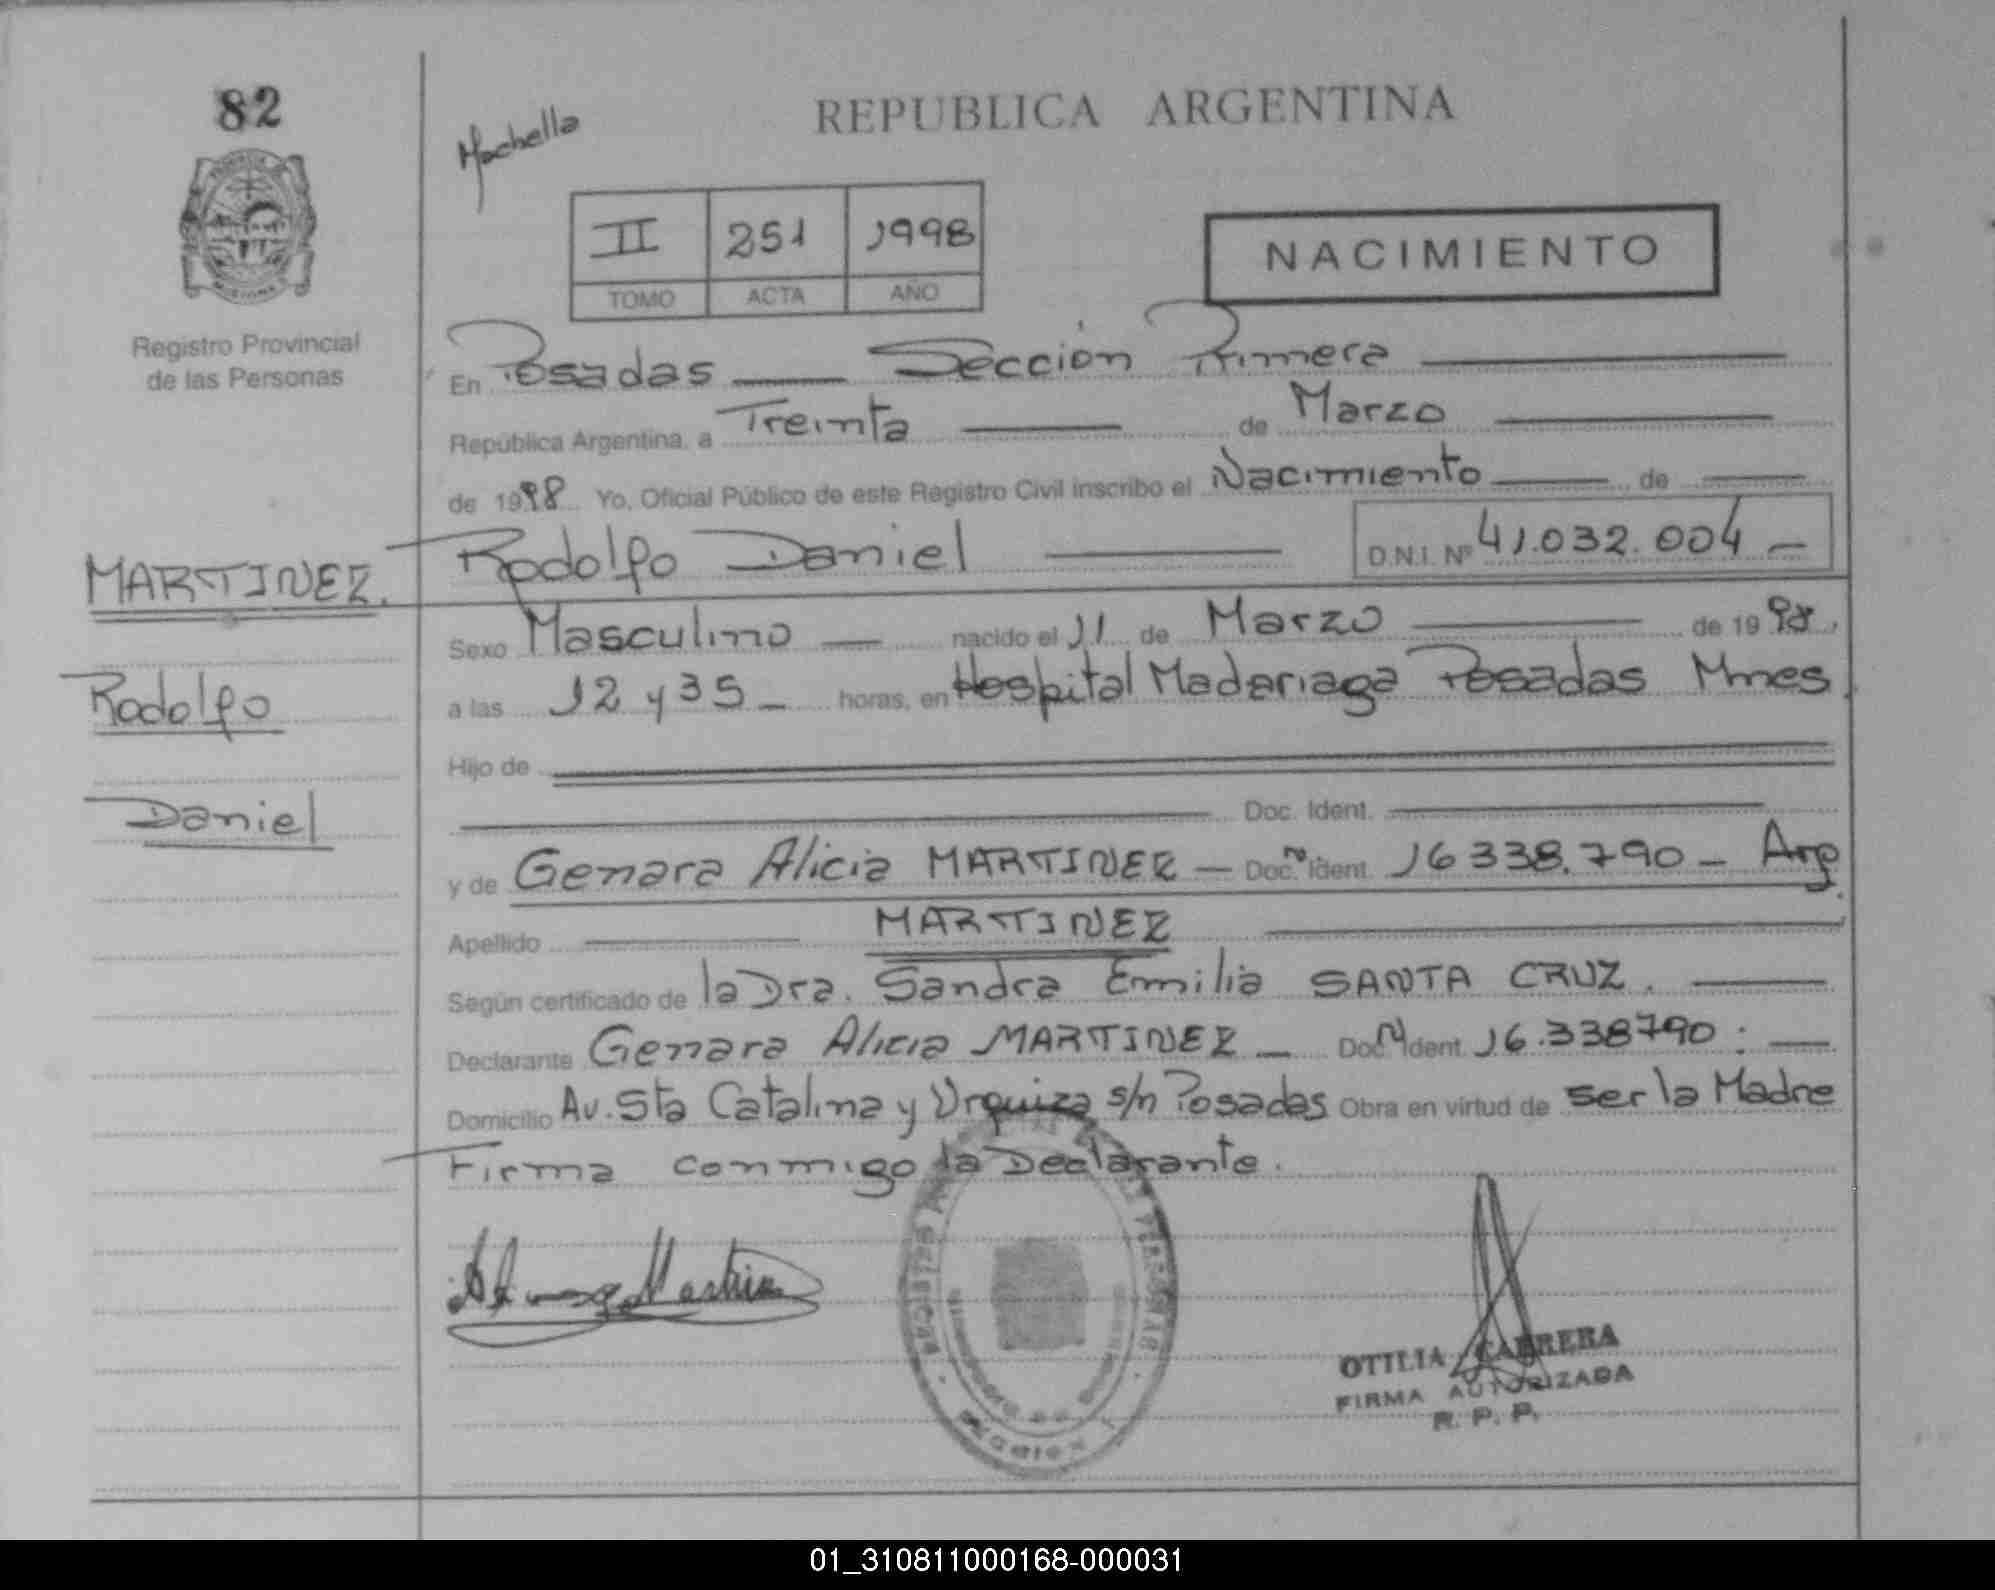 82
Machella
REPUBLICA ARGENTINA
II 251 1998
TOMO ACTA AÑO
NACIMIENTO
Registro Provincial
de las Personas
En Posadas Sección Primera
República Argentina, a Treinta de Marzo
de 1998 Yo, Oficial Público de este Registro Civil inscribo el Nacimiento de
Rodolfo Daniel D.N.I. Nº 41.032.004
MARTINEZ.
Rodolfo
Daniel
Sexo Masculino nacido el 11 de Marzo de 1998.
a las 12 y 35 horas, en Hospital Madariaga Posadas Mnes.
Hijo de
Doc. Ident.
y de Genara Alicia MARTINEZ Doc. Ident. 16338.790 Arg.
Apellido MARTINEZ
Según certificado de la Dra. Sandra Emilia SANTA CRUZ.
Declarante Genara Alicia MARTINEZ Doc. Ident. 16.338790:
Domicilio Av. Sta Catalina y Urquiza s/n Posadas Obra en virtud de ser la Madre
Firma conmigo la Declarante.
OTILIA CABRERA
FIRMA AUTORIZADA
R. P. P.
01_310811000168-000031